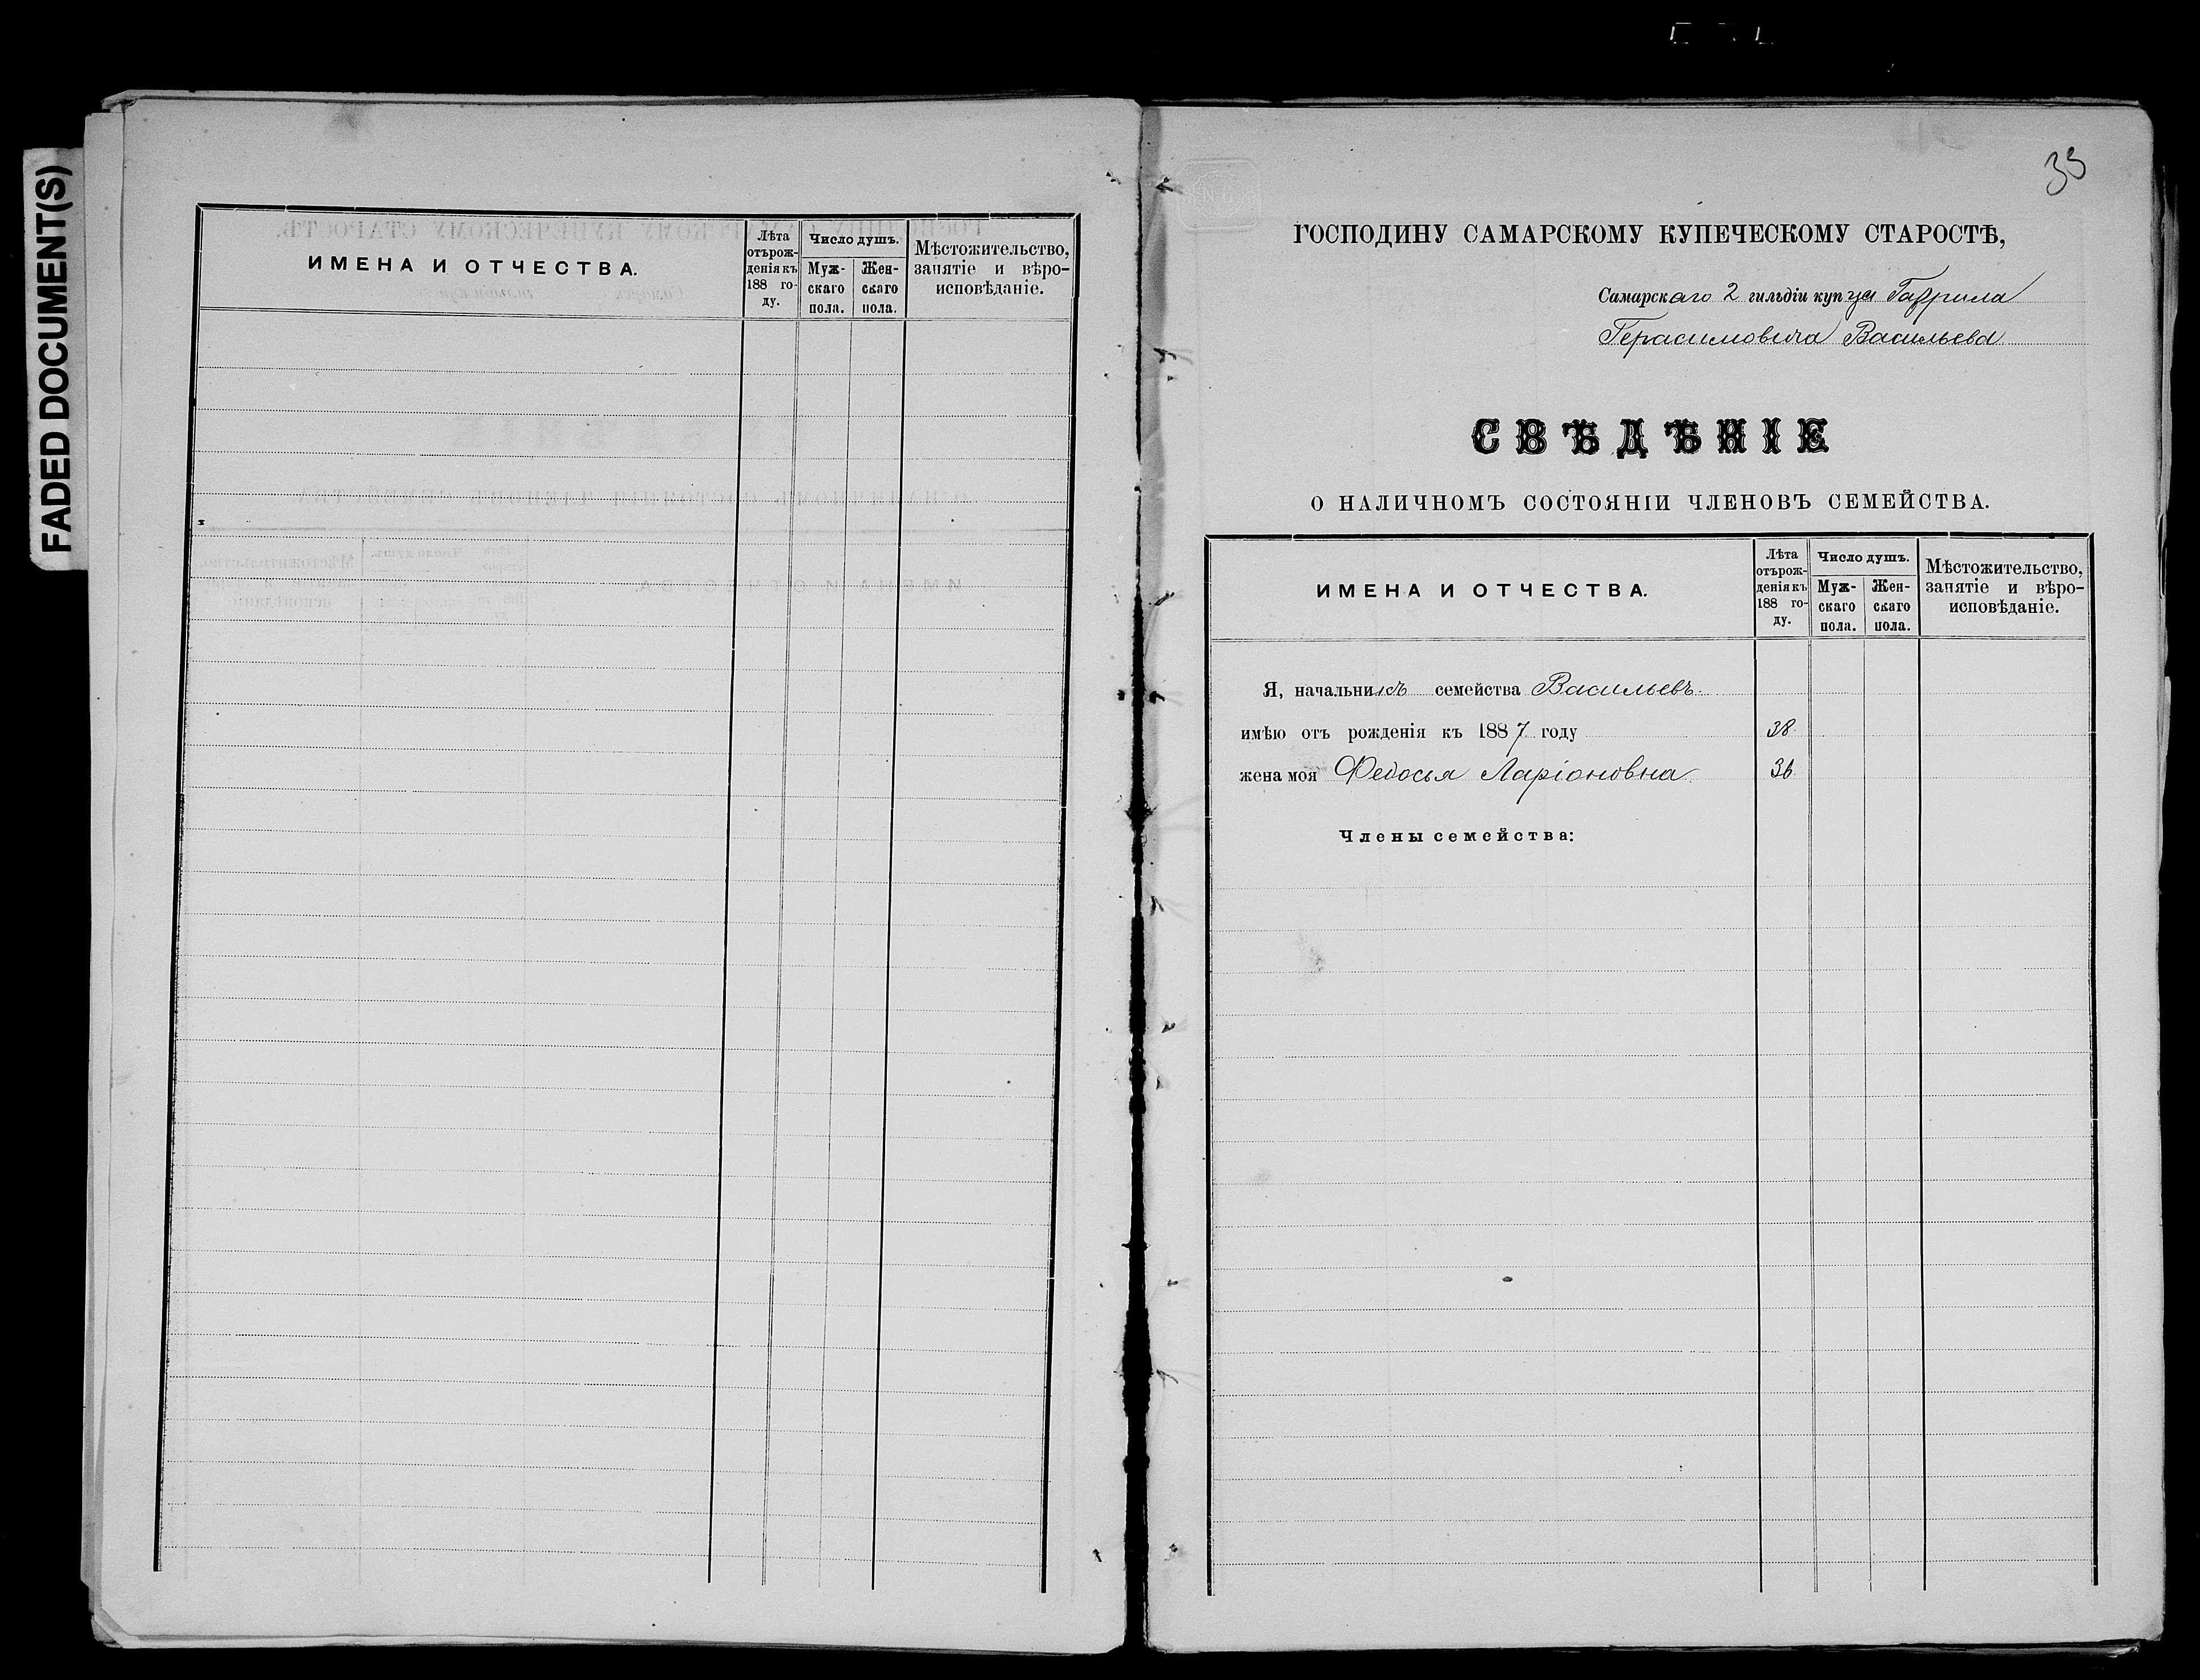 FADED DOCUMENT(S)
ИМЕНА И ОТЧЕСТВА.
Лѣта
отърож-
денія къ
188 го-
ду.
Число душъ.
Муж-
скаго
пола.
Жен-
скаго
пола.
Мѣстожительство,
занятіе и вѣро-
исповѣданіе.
ГОСПОДИНУ САМАРСКОМУ КУПЕЧЕСКОМУ СТАРОСТѢ,
Самарскаго 2 гильдіи купца Гаврила
Герасимовича Васильева
СВѢДѢНІЕ
О НАЛИЧНОМЪ СОСТОЯНІИ ЧЛЕНОВЪ СЕМЕЙСТВА.
ИМЕНА И ОТЧЕСТВА.
Лѣта
отърож-
денія къ
188 го-
ду.
Число душъ.
Муж-
скаго
пола.
Жен-
скаго
пола.
Мѣстожительство,
занятіе и вѣро-
исповѣданіе.
Я, начальникъ семейства Васильевъ
имѣю отъ рожденія къ 1887 году 38
жена моя Федосья Ларіоновна 36
Члены семейства: